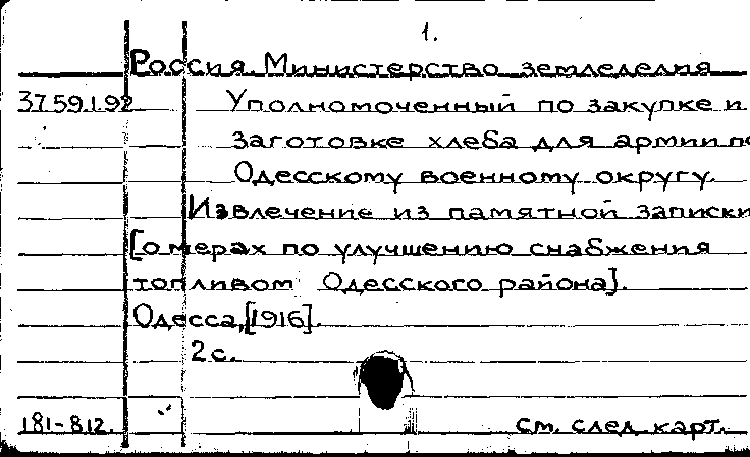 1.
Россия. Министерство земледелия
37.59.1.92 Уполномоченный по закупке и
заготовке хлеба для армии по
Одесскому военному округу.
Извлечение из памятной записки
[о мерах по улучшению снабжения
топливом Одесского района].
Одесса, [1916].
2 с.
181-812. см. след. карт.